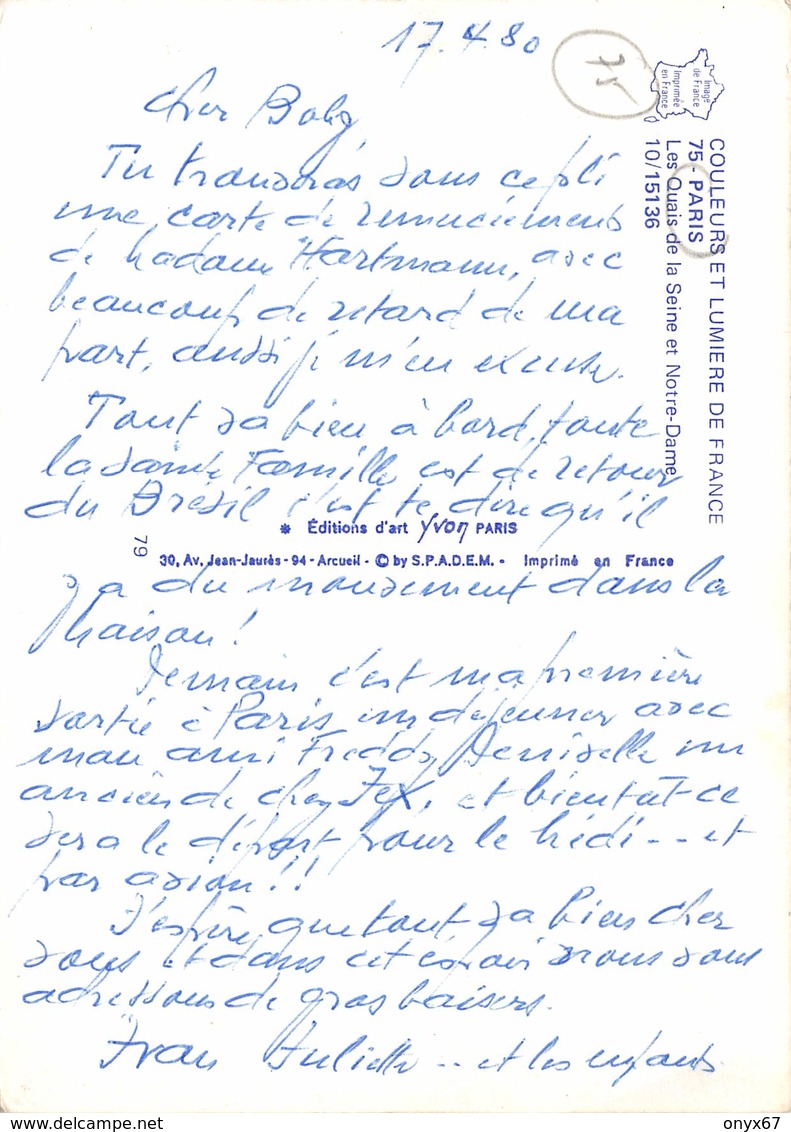 17.4.80
75
Image
de France
Imprimée
en France
COULEURS ET LUMIERE DE FRANCE
75 - PARIS
Les Quais de la Seine et Notre-Dame
10/15136
Cher Boby
Tu trouveras sous ce pli
une carte de remerciements
de Madame Hartmann, avec
beaucoup de retard de ma
part, aussi je m'en excuse.
Tout va bien à bord, toute
la sainte Famille est de retour
du Brésil c'est te dire qu'il
* Éditions d'art yvon PARIS
79
30, Av. Jean-Jaurès - 94 - Arcueil - © by S.P.A.D.E.M. - Imprimé en France
y a du mouvement dans la
Maison !
Demain c'est ma première
sortie à Paris un déjeuner avec
mon ami Freddy un
ancien de chez Fex, et bientôt ce
sera le départ pour le Midi -- et
par avion !!
J'espère que tout va bien chez
vous et dans cet espoir nous vous
adressons de gros baisers.
Ivan Juliette -- et les enfants
onyx67